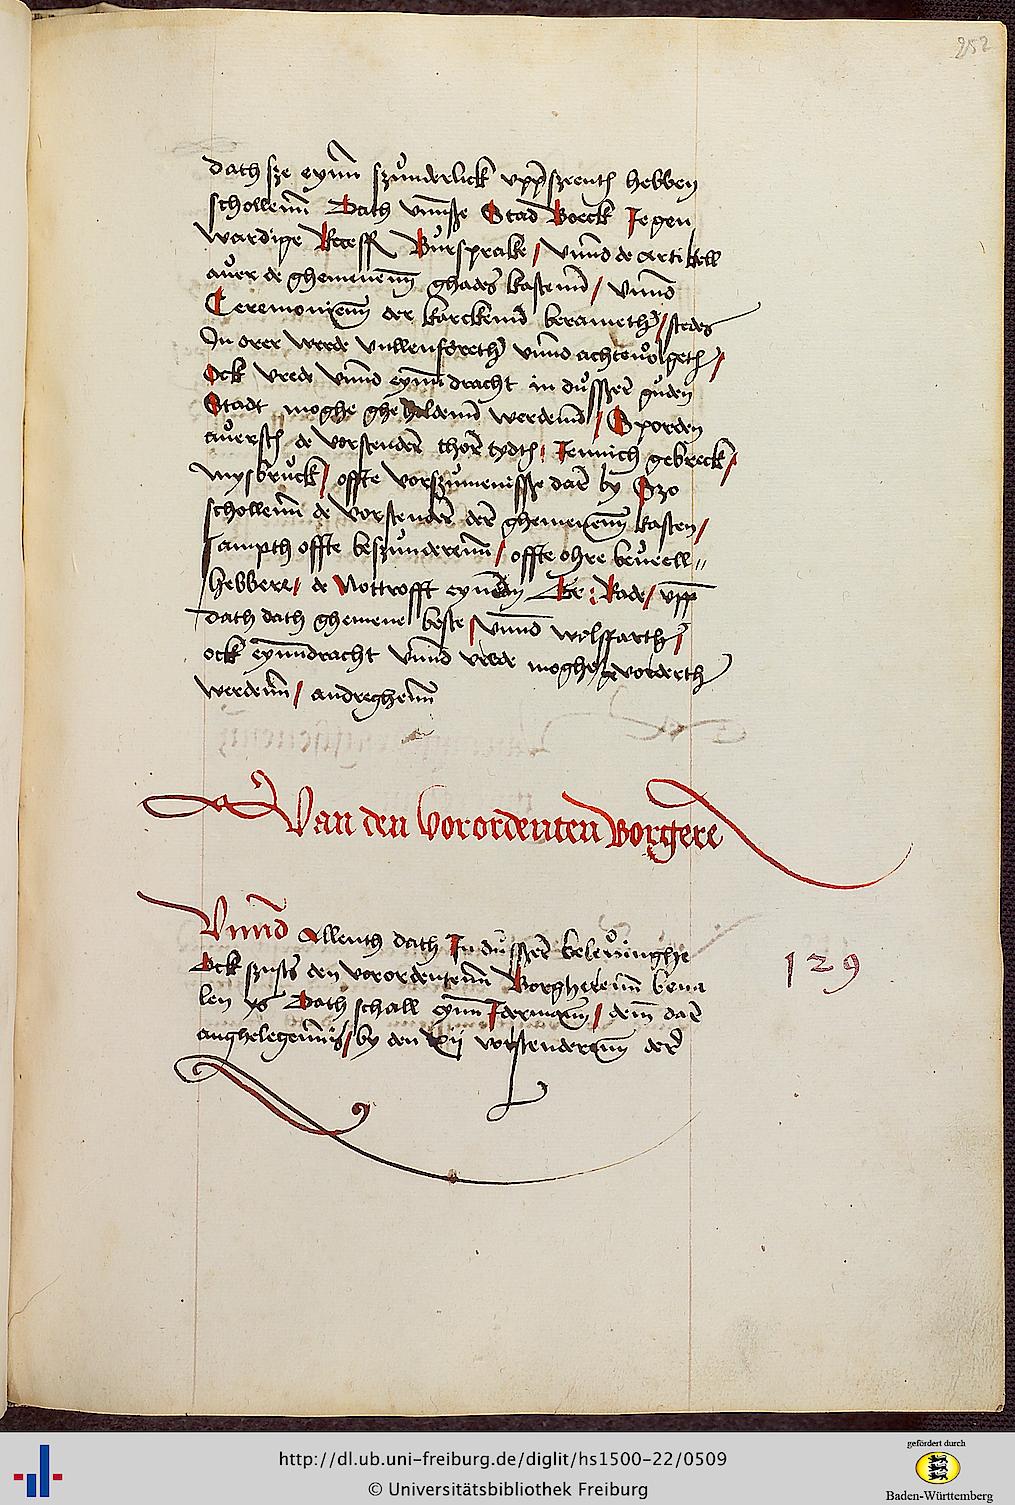 252
dath sze eynn szunderlick uppszeenth hebben
schollenn Dath unnsse Stad Boeck Jegen
wardige Recess Bursprake / unnd de artikell
auer de ghemenenn ghades kastenn / unnd
Ceremonienn der karckenn berameth / stedes
In orer werde unllenforeth unnd achteuolgeth /
Ock vrede unnd eynndracht in dusszer guden
Stadt moghe gheholdenn werdenn / Sporden
auersth de vorstender thor tydth / Jennich gebreck /
mysbruck / offte vorszumenissze dar by Szo
schollenn de vorstender der ghemenenn kasten /
sampth offte beszunderenn / offte ohre beueell
hebbere / de Nottrofft eynem Er : Rade / upp
dath dath ghemene beste / unnd wolffarth /
ock eynndracht unnd vrede moghe gevorderth
werdenn / andregenn
Van den Vorordenten Borgere
Unnd allenth dath In dusszer beleuinghe
Ock szusts den vorordentenn Borgherenn beua
len ys Dath schall eynn Jdermann / dem dar
anghelegenn is / by den xij vorstenderenn der
129
http://dl.ub.uni-freiburg.de/diglit/hs1500-22/0509
© Universitätsbibliothek Freiburg
gefördert durch
Baden-Württemberg